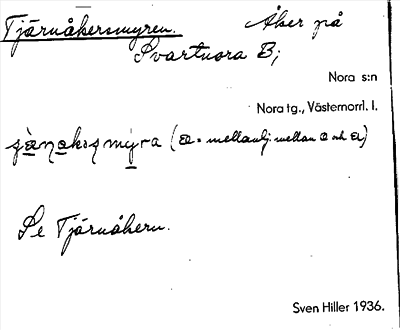 Tjärnåkersmyren. Åker på
Svartnora B;
Nora s:n
Nora tg., Västernorrl. l.
mellanlj. mellan a och
Se Tjärnåkern.
Sven Hiller 1936.